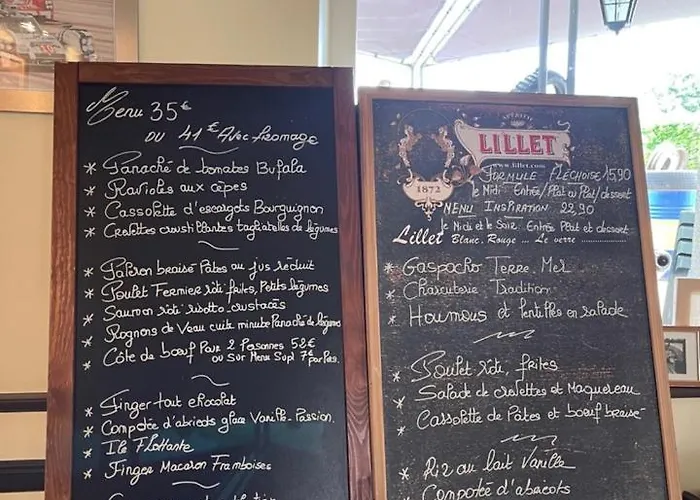 Menu 35€
ou 41€ Avec fromage
* Panaché de tomates Bufala
* Ravioles aux cèpes
* Cassolette d'escargots Bourguignon
* Crevettes crousti Plantes tagliatelles de légumes
* Paleron braisé Pâtes au jus réduit
* Poulet Fermier rôti frites, Petits légumes
* Saumon rôti risotto crustacés
* Rognons de Veau cuits minute Panaché de légumes
* Côte de bœuf Pour 2 Personnes 52€
ou Sur Menu Supl 7€ par Pers.
* Finger tout chocolat
* Compotée d'abricots glace Vanille-Passion.
* Ile Flottante
* Finger Macaron Framboises
APERITIF
LILLET
www.lillet.com
1872
FORMULE FLÉCHOISE 15,90
le Midi Entrée/Plat ou Plat/dessert
MENU INSPIRATION 22,90
le Midi et le Soir Entrée Plat et dessert
Lillet Blanc, Rouge ... Le verre
* Gaspacho Terre, Mer
* Charcuterie Tradition
* Houmous et lentilles en salade
* Poulet rôti, frites
* Salade de crevettes et Maquereau
* Cassolette de Pâtes et bœuf braisé
* Riz au lait Vanille
* Compotée d'abricots